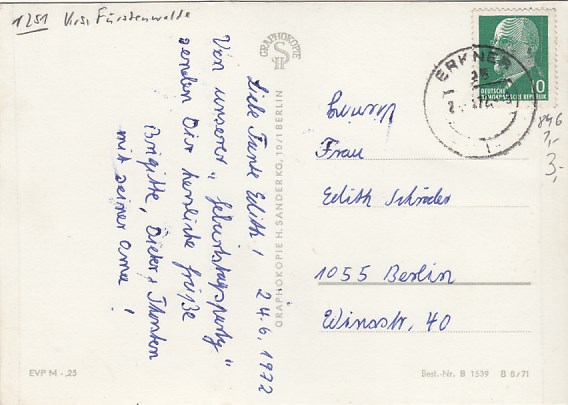 1251 Krs. Fürstenwalde
GRAPHOKOPIE
Liebe Tante Edith! 24.6.1972
Von unserer „Geburtstagsparty"
senden Dir herzliche Grüße
Brigitte, Dieter + Thorsten
mit seiner Oma!
GRAPHOKOPIE H. SANDER KG, 10/1 BERLIN
ERKNER
DEUTSCHE
DEMOKRATISCHE REPUBLIK
10
846
3,-
Frau
Edith Schröder
1055 Berlin
Winsstr. 40
EVP M -,25
Best.-Nr. B 1539 B 8/71